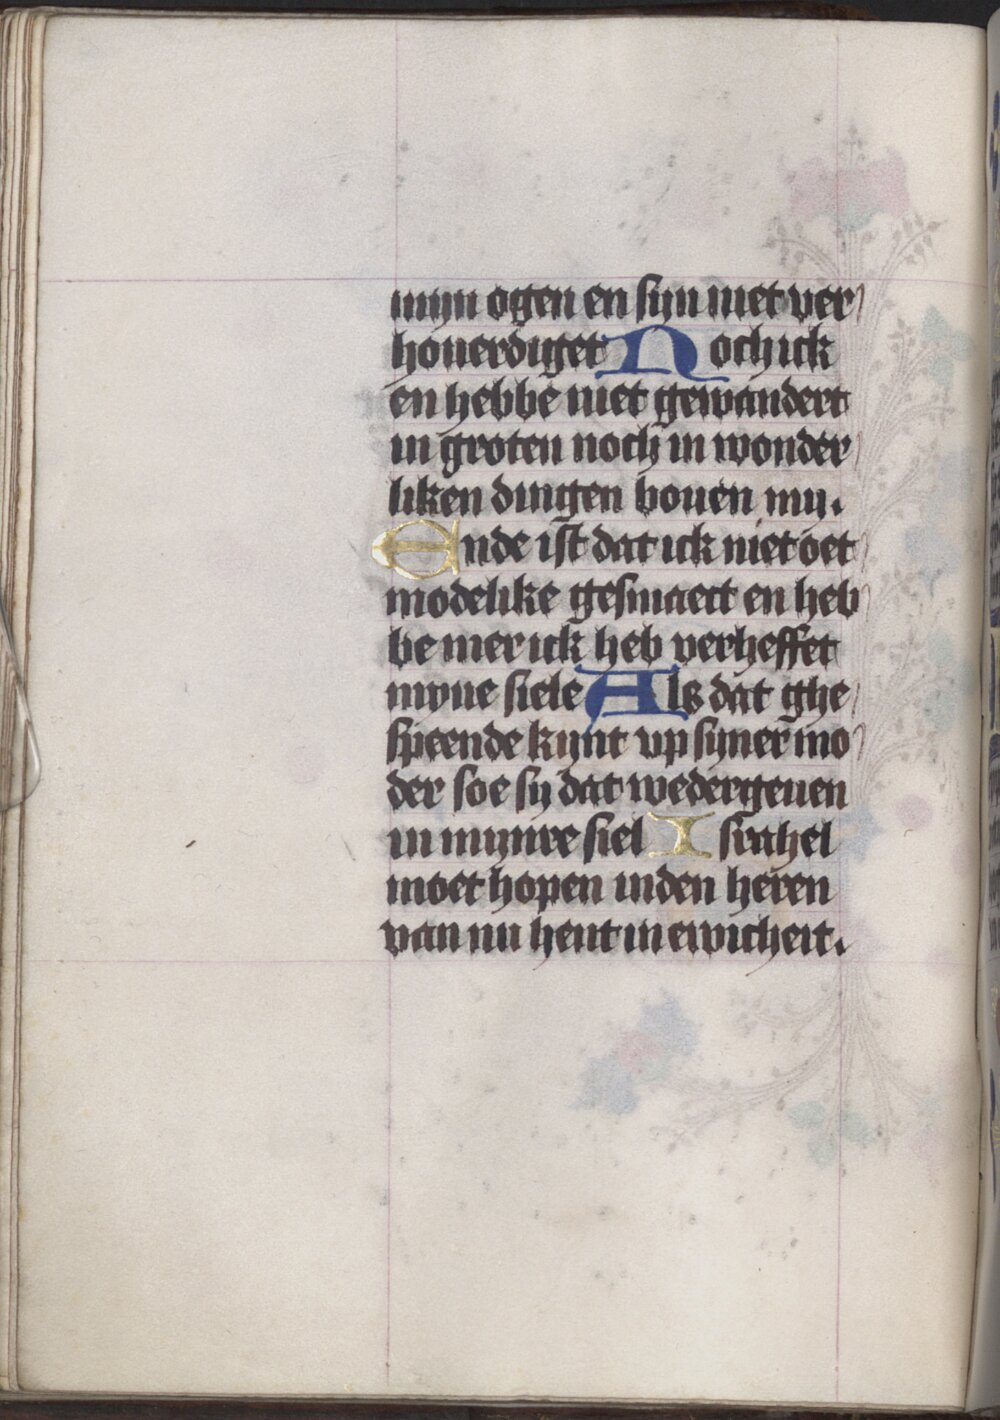 mijn ogen en sijn niet ver
houerdiget Noch ick
en hebbe niet gewandert
in groten noch in wonder
liken dingen bouen mij.
Ende ist dat ick niet oet
modelike gesmaect en heb
be mer ick heb verheffet
myne siele Als dat ghe
speende kijnt vp sijner mo
der soe sij dat wedergeuen
in mijnre siel Israhel
moet hopen inden heren
van nu hent in ewicheit.